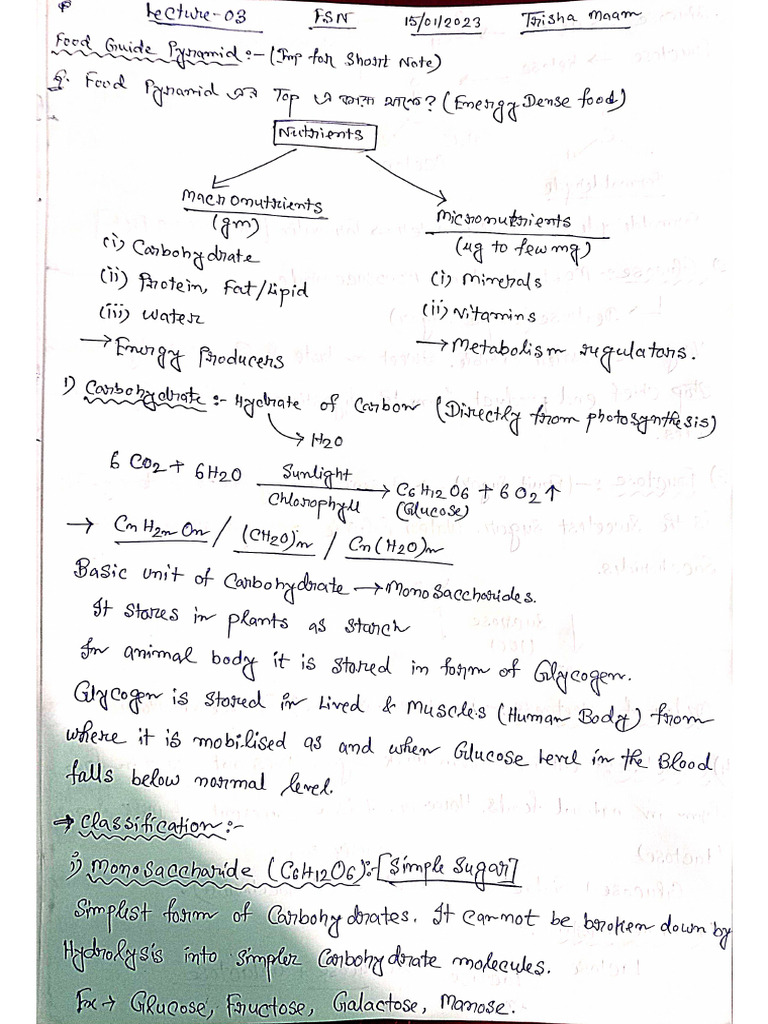 Lecture-03 FSN 15/01/2023 Trisha Maam
Food Guide Pyramid :- (Imp for Short Note)
Q. Food Pyramid এর Top এ কারা থাকে? (Energy Dense food)
Nutrients
Macronutrients
(gm)
(i) Carbohydrate
(ii) Protein, Fat/Lipid
(iii) Water
→ Energy Producers
Micronutrients
(ug to few mg)
(i) Minerals
(ii) Vitamins
→ Metabolism regulators.
1) Carbohydrate :- Hydrate of Carbon (Directly from photosynthesis)
→ H2O
6 CO2 + 6H2O Sunlight Chlorophyll → C6H12O6 + 6O2↑
(Glucose)
→ CnH2nOn / (CH2O)n / Cn(H2O)n
Basic unit of Carbohydrate → Monosaccharides.
It stores in plants as starch
In animal body it is stored in form of Glycogen.
Glycogen is stored in Lived & Muscles (Human Body) from
where it is mobilised as and when Glucose level in the Blood
falls below normal level.
→ Classification :-
i) Monosaccharide (C6H12O6) :- [Simple Sugar]
Simplest form of Carbohydrates. It cannot be broken down by
Hydrolysis into simpler Carbohydrate molecules.
Ex → Glucose, Fructose, Galactose, Manose.